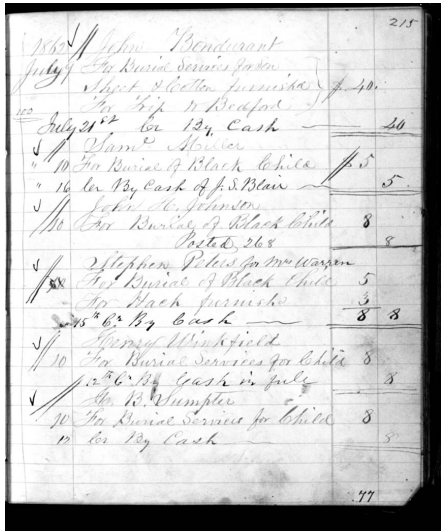 215
1862 John Bondurant
July 9 For Burial Services for son
Sheet & Cotton furnished $ 40.
For Trip to Bedford
July 21st Cr By Cash 40
Saml Miller
" 10 For Burial of Black Child $ 5
" 16 Cr By Cash of J. S. Blair 5.
John H. Johnson
10 For Burial of Black Child 8
Posted, 268 8
Stephen for Mrs Warren
For Burial of Black Child 5
For Hack furnished 3
15th Cr By Cash 8 8
Henry Winkfield
10 For Burial Services for Child 8
12th Cr By Cash in full 8
B. Sumpter
10 For Burial Services for Child 8
12 Cr By Cash 8
77